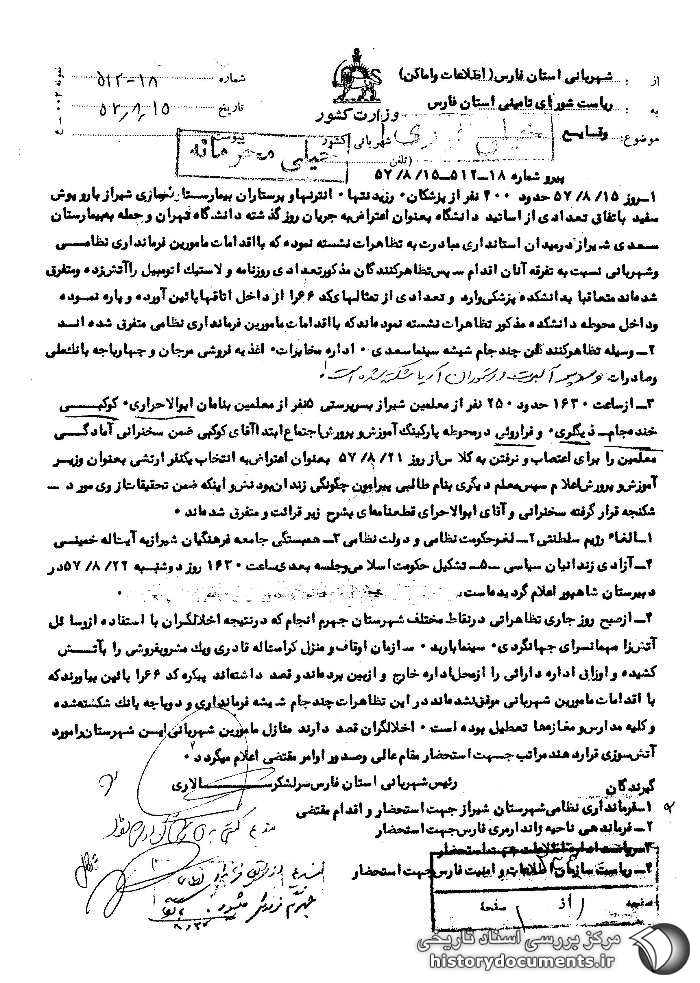 از : شهربانی استان فارس (اطلاعات و اماکن)
شماره ۱۸-۵۱۲
به : ریاست شورای تامینی استان فارس
وزارت کشور
تاریخ ۵۷/۸/۱۵
موضوع : وقایع
شهربانی کشور
پیوست
خیلی فوری
خیلی محرمانه
پیرو شماره ۱۸-۵۱۲-۵۷/۸/۱۵
۱-روز ۵۷/۸/۱۵ حدود ۴۰۰ نفر از پزشکان، رزیدنتها، انترنها و پرستاران بیمارستان نمازی شیراز با روپوش
سفید باتفاق تعدادی از اساتید دانشگاه بعنوان اعتراض به جریان روز گذشته دانشگاه تهران و حمله به بیمارستان
سعدی شیراز در میدان استانداری مبادرت به تظاهرات نشسته نموده که با اقدامات مامورین فرمانداری نظامی
و شهربانی نسبت به تفرقه آنان اقدام سپس تظاهرکنندگان مذکور تعدادی روزنامه و لاستیک اتومبیل را آتش زده و متفرق
شده اند متعاقبا بدانشکده پزشکی وارد و تعدادی از تمثالهای کد ۶۶ را از داخل اتاقها پائین آورده و پاره نموده
و داخل محوطه دانشکده مذکور تظاهرات نشسته نموده اند که با اقدامات مامورین فرمانداری نظامی متفرق شده اند
۲- وسیله تظاهرکنندگان چند جام شیشه سینما سعدی ، اداره مخابرات، اغذیه فروشی مرجان و چهار باجه بانک ملی
و صادرات و رستوران آریا شکسته شده است
۳- از ساعت ۱۶۳۰ حدود ۲۵۰ نفر از معلمین شیراز بسرپرستی ۵نفر از معلمین بنامان ابوالاحراری، کوکبی
خنده جام، و در محوطه پارکینگ آموزش و پرورش اجتماع ابتدا آقای کوکبی ضمن سخنرانی آمادگی
معلمین را برای اعتصاب و نرفتن به کلاس از روز ۵۷/۸/۲۱ بعنوان اعتراض به انتخاب یکنفر ارتشی بعنوان وزیر
آموزش و پرورش اعلام سپس معلم دیگری بنام طالبی پیرامون چگونگی زندان بودنش و اینکه ضمن تحقیقات از وی مورد
شکنجه قرار گرفته سخنرانی و آقای ابوالاحرای قطعنامه ای بشرح زیر قرائت و متفرق شده اند ،
۱-الغاء رژیم سلطنتی ۲- لغو حکومت نظامی و دولت نظامی ۳- همبستگی جامعه فرهنگیان شیراز به آیت اله خمینی
۴-آزادی زندانیان سیاسی -۵- تشکیل حکومت اسلامی و جلسه بعدی ساعت ۱۶۳۰ روز دوشنبه ۵۷/۸/۲۲ در
دبیرستان شاهپور اعلام گردیده است،
۴- از صبح روز جاری تظاهراتی در نقاط مختلف شهرستان جهرم انجام که در نتیجه اخلالگران با استفاده از وسائل
آتش زا مهمانسرای جهانگردی، سینما پارید ، سازمان اوقاف و منزل کرامت اله قادری و یک مشروب فروشی را به آتش
کشیده و اوراقی اداره دارائی را از محل اداره خارج و از بین برده اند و قصد داشته اند پیکره کد ۶۶ را پائین بیاورند که
با اقدامات مامورین شهربانی موفق نشده اند در این تظاهرات چند جام شیشه فرمانداری و دو باجه بانک شکسته شده
و کلیه مدارس و مغازه ها تعطیل بوده است ، اخلالگران قصد دارند منازل مامورین شهربانی این شهرستان را مورد
آتش سوزی قرار دهند مراتب جهت استحضار مقام عالی و صدور اوامر مقتضی اعلام میگردد ،
رئیس شهربانی استان فارس سرلشکر سالاری
گیرندگان
۱-فرمانداری نظامی شهرستان شیراز جهت استحضار و اقدام مقتضی
۲- فرماندهی ناحیه ژاندارمری فارس جهت استحضار
۴- ریاست سازمان اطلاعات و امنیت فارس جهت استحضار
صفحه ۱ از ۱ صفحه
مرکز بررسی اسناد تاریخی
historydocuments.ir